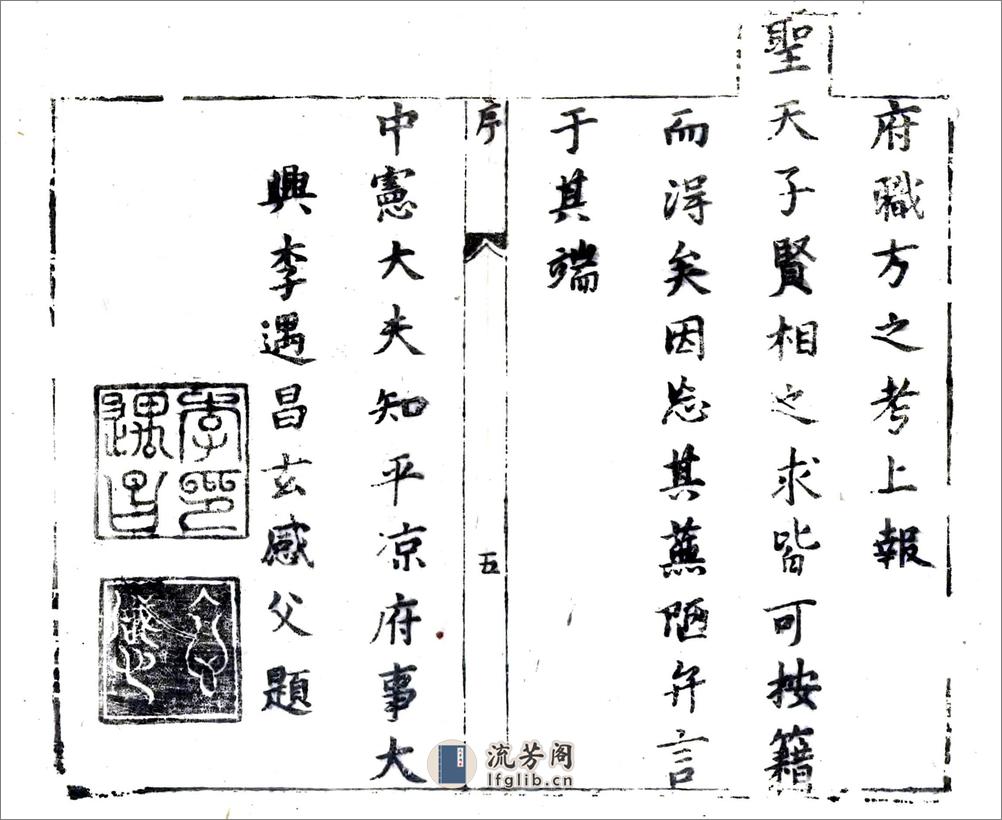 府職方之考上報
聖天子賢相之求皆可按籍
而淂矣因忘其蕪陋弁言
于其端
序
五
中憲大夫知平凉府事大
興李遇昌玄感父題
李印遇昌
流芳阁
lfglib.cn